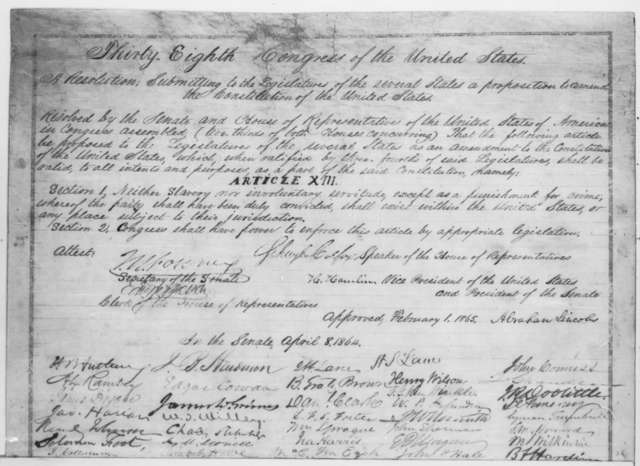 Thirty Eighth Congress of the United States.
A Resolution; Submitting to the Legislatures of the several States a proposition to amend
the Constitution of the United States.
Resolved by the Senate and House of Representative of the United States of America
in Congress assembled, (two thirds of both Houses concurring) That the following article
be proposed to the Legislatures of the several States as an amendment to the Constitution
of the United States, which, when ratified by three fourth of said Legislatures, shall be
valid, to all intents and purposes, as a part of the said Constitution, namely:
ARTICLE XIII.
Section 1, Neither Slavery nor involuntary servitude, except as a punishment for crime,
whereof the party shall have been duly convicted, shall exist within the United States, or
any place subject to their jurisdiction.
Section 2, Congress shall have power to enforce this article by appropriate legislation.
Attest; Schuyler Colfax Speaker of the House of Representatives
J. W. Forney
Secretary of the Senate H. Hamlin Vice President of the United States
and President of the Senate
Clerk of the House of Representatives
Approved, February 1. 1865. Abraham Lincoln
In the Senate, April 8, 1864.
J. B. Henderson H S Lane John Conness
Edgar Cowan B. Gratz Brown Henry Wilson J R Doolittle
James Harlan James W. Grimes Dan Clark
W. T. Willey Lyman Trumbull
Reverdy Johnson Wm Sprague
Solomon Foot, Ira Harris M Wilkinson
John P Hale